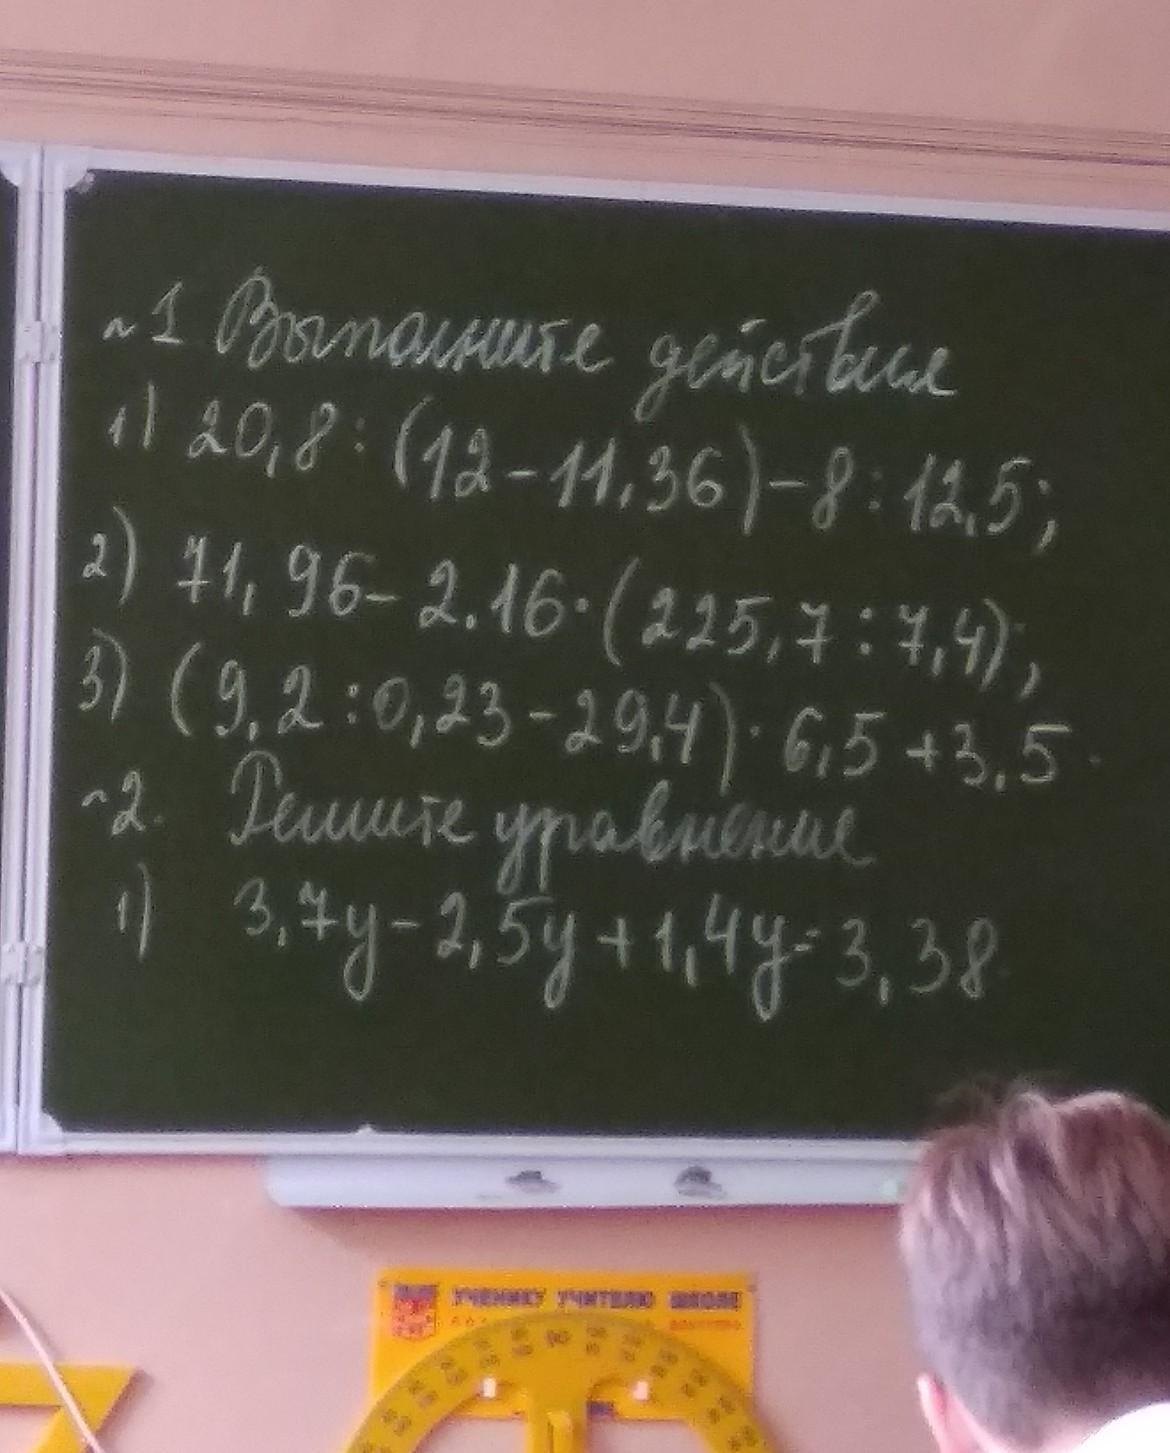 №1 Выполните действия
1) 20,8 : (12 - 11,36) - 8 : 12,5;
2) 71,96 - 2.16 · (225,7 : 7,4);
3) (9,2 : 0,23 - 29,4) · 6,5 + 3,5.
№2. Решите уравнение
1) 3,7у - 2,5у + 1,4у = 3,38
УЧЕНИКУ УЧИТЕЛЮ ШКОЛЕ
90